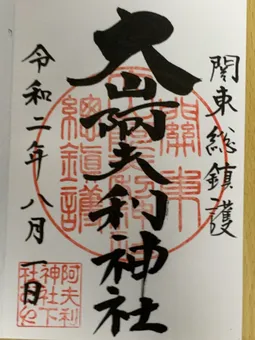 関東総鎮護
大山阿夫利神社
令和二年八月一日
關東
總鎮護
阿夫利
神社下
社之印